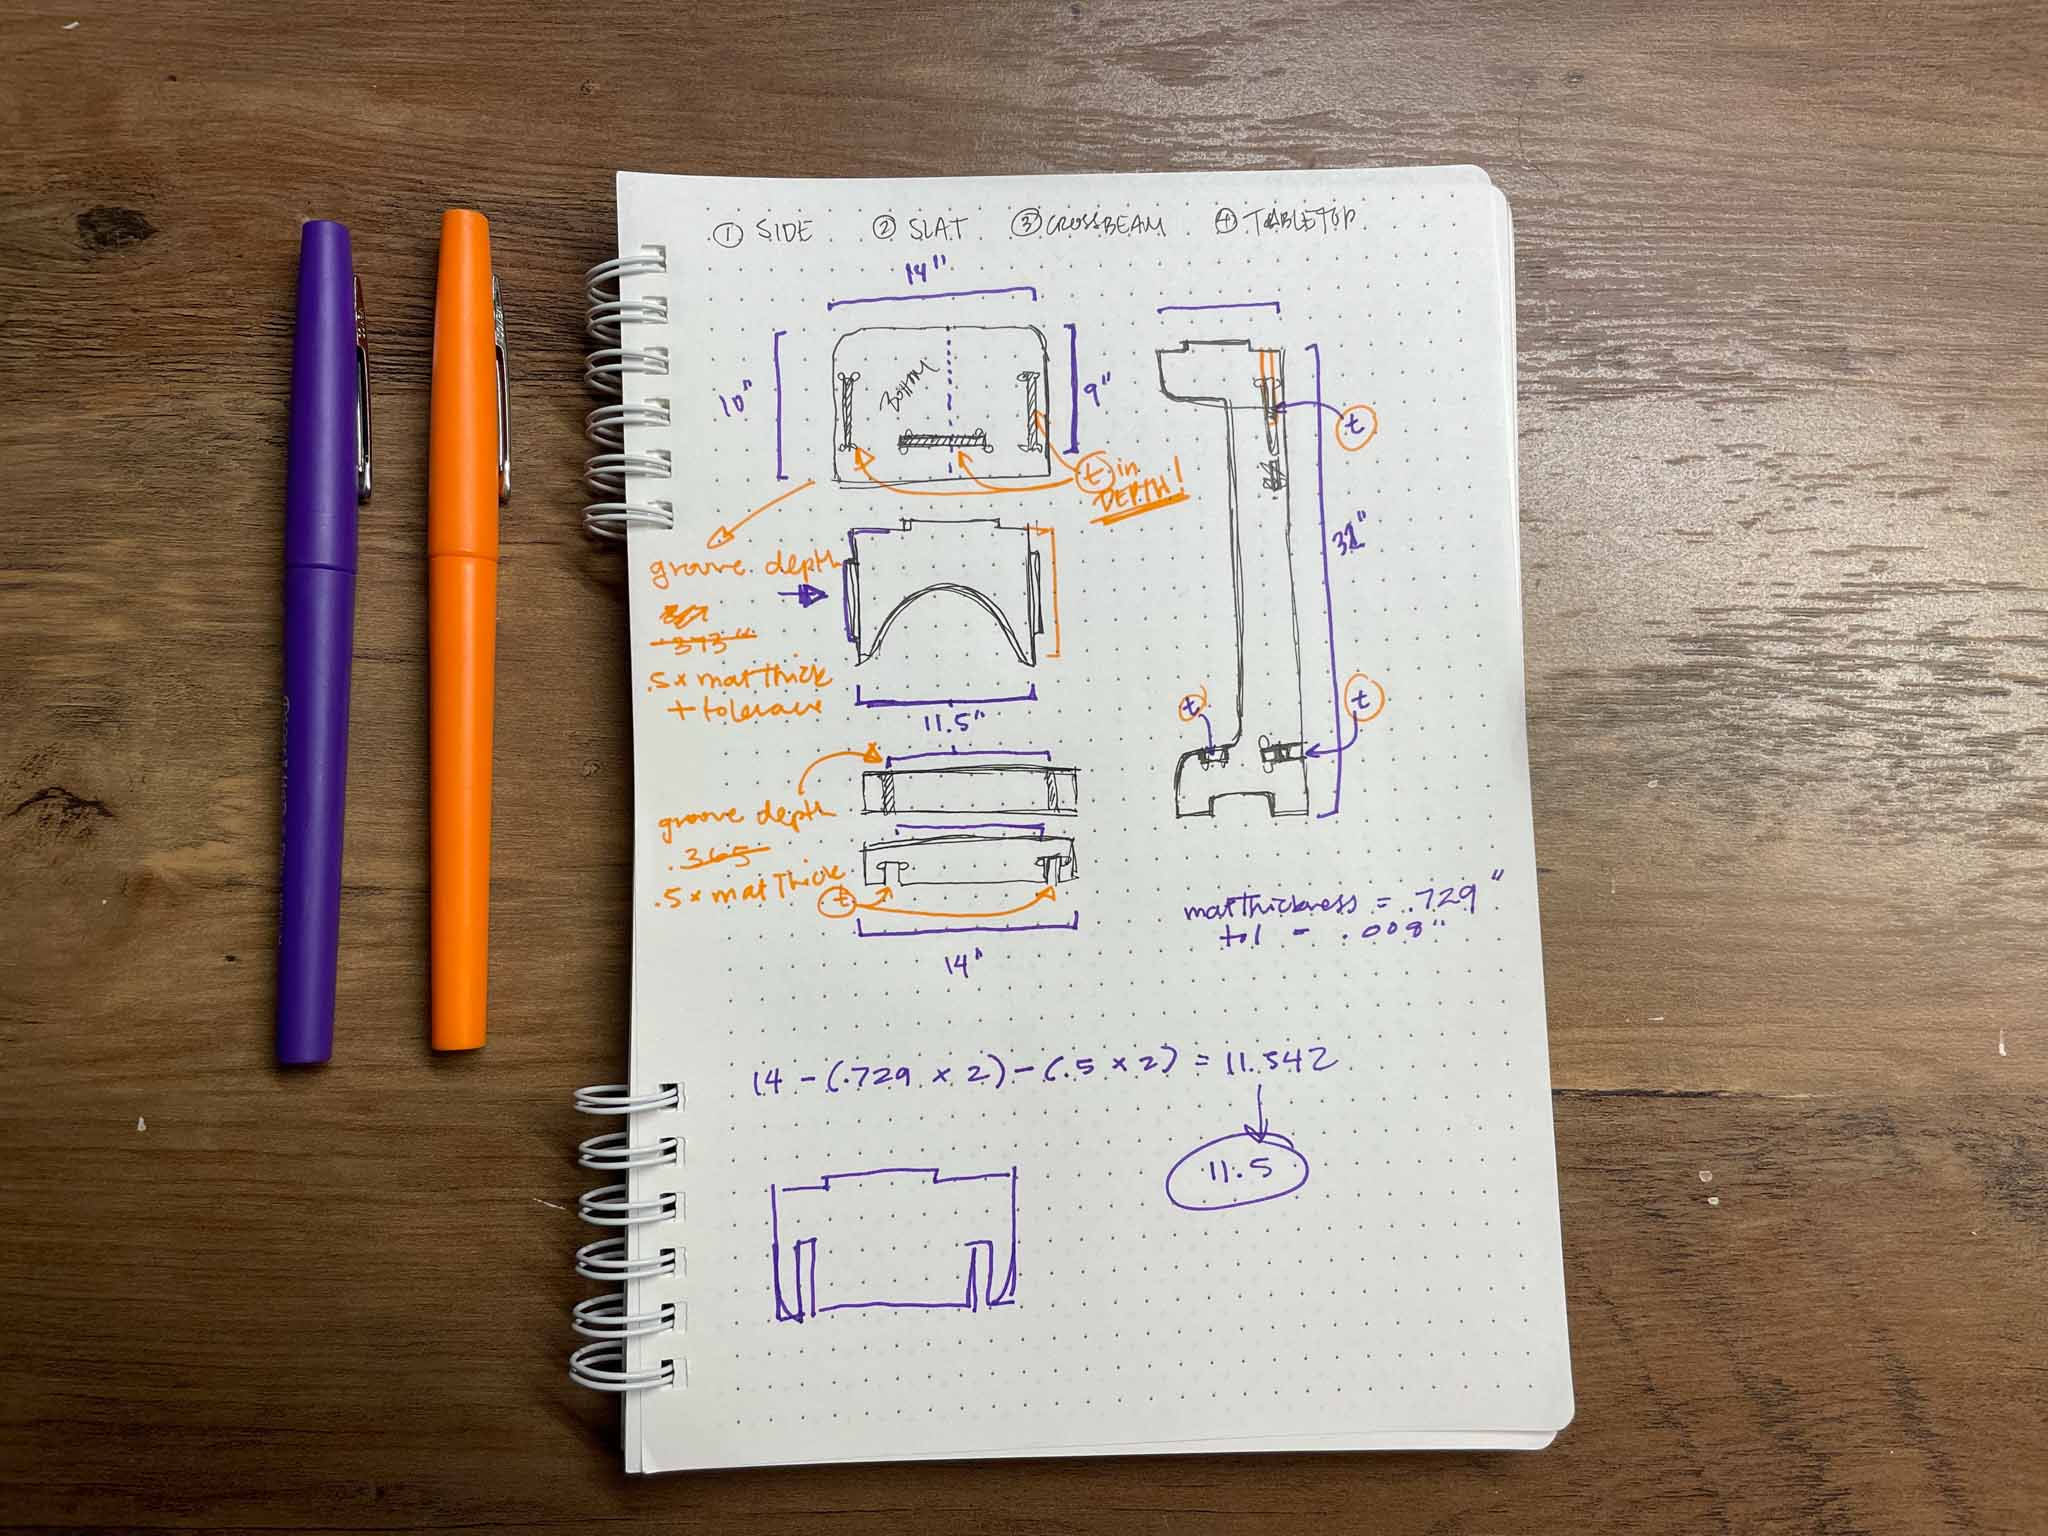 ① SIDE ② SLAT ③ CROSSBEAM ④ TABLETOP
14"
10"
BOTTOM
9"
t
t in
DEPTH!
31"
groove depth
.373"
.5 x matThick
+ tolerance
11.5"
t
t
groove depth
.365
.5 x matThick
t
14"
matThickness = .729"
tol = .008"
14 - (.729 x 2) - (.5 x 2) = 11.542
11.5